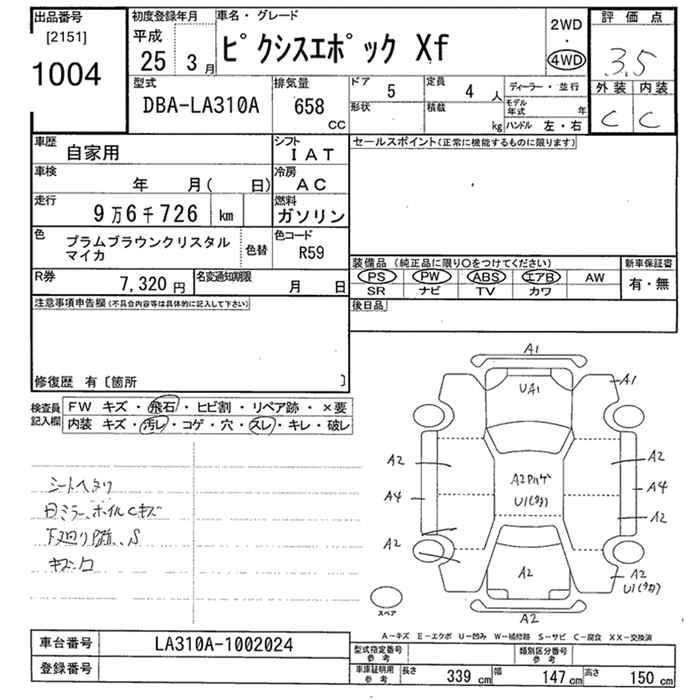 出品番号
[2151]
1004
初度登録年月
平成
25 3月
車名・グレード
ピクシスエポック Xf
2WD
・
4WD
評価点
3.5
外装 内装
C C
型式
DBA-LA310A
排気量
658
CC
ドア 5
定員 4 人
形状
積載 kg
ディーラー・並行
モデル年式 年
ハンドル 左・右
車歴
自家用
シフト
IAT
車検
年 月( 日)
冷房
AC
走行
9万6千726 km
燃料
ガソリン
色
プラムブラウンクリスタル
マイカ
色替
色コード
R59
R券
7,320 円
名変通知期限
月 日
セールスポイント(正常に機能するものに限ります)
装備品 (純正品に限り○をつけてください)
PS PW ABS エアB AW
SR ナビ TV カワ
新車保証書
有・無
後日品
注意事項申告欄(不具合内容等は具体的に記入して下さい)
修復歴 有〔箇所 〕
検査員
記入欄
FW キズ・飛石・ヒビ割・リペア跡・×要
内装 キズ・汚レ・コゲ・穴・スレ・キレ・破レ
シートヘタリ
ミラー、ホイルCキズ
S
A1
UA1
A1
A2
A4
A2
A2
U1
A2
A4
A2
A2
A2
U1
A2
スペア
A-キズ E-エクボ U-凹み W-補修跡 S-サビ C-腐食 XX-交換済
車台番号
LA310A-1002024
登録番号
型式指定番号
参考
類別区分番号
参考
車庫証明用
参考
長さ 339 cm
幅 147 cm
高さ 150 cm